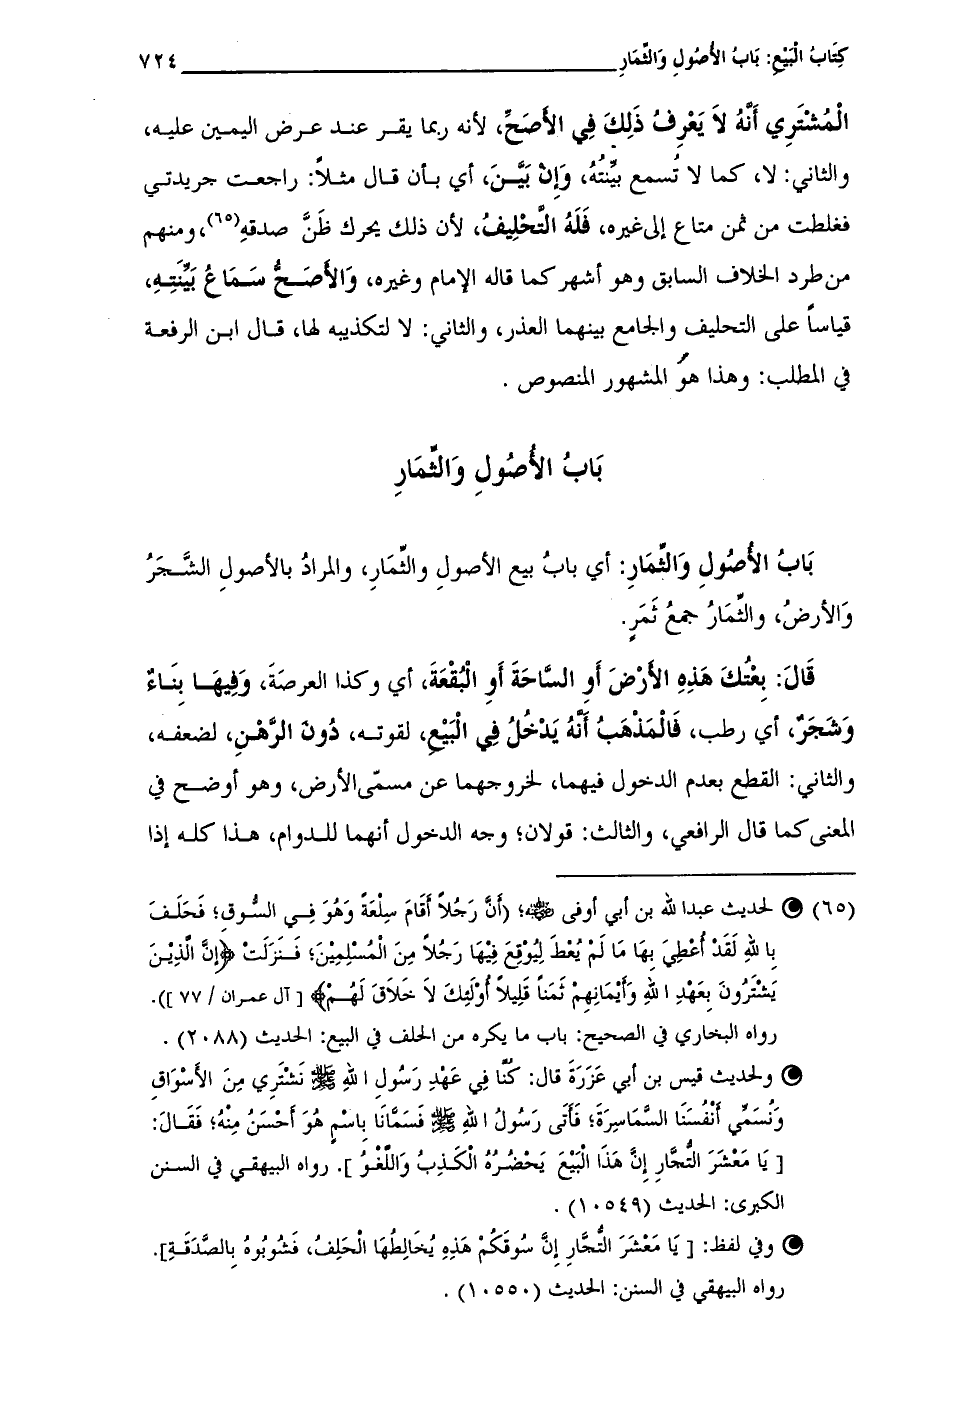 كِتَابُ الْبَيْعِ: بَابُ الأُصُولِ وَالثِّمَارِ ٧٢٤
الْمُشْتَرِي أَنَّهُ لاَ يَعْرِفُ ذَلِكَ فِي الأَصَحِّ، لأنه ربما يقر عند عرض اليمين عليه،
والثاني: لا، كما لا تُسمع بيِّنتُهُ، وَإِنْ بَيَّنَ، أي بأن قال مثلاً: راجعت جريدتي
فغلطت من ثمن متاع إلى غيره، فَلَهُ التَّحْلِيفُ، لأن ذلك يحرك ظَنَّ صدقهِ(٦٥)، ومنهم
من طرد الخلاف السابق وهو أشهر كما قاله الإمام وغيره، وَالأَصَحُّ سَمَاعُ بَيِّنَتِهِ،
قياساً على التحليف والجامع بينهما العذر، والثاني: لا لتكذيبه لها، قال ابن الرفعة
في المطلب: وهذا هو المشهور المنصوص .
بَابُ الأُصُولِ وَالثِّمَارِ
بَابُ الأُصُولِ وَالثِّمَارِ: أي بابُ بيع الأصولِ والثِّمارِ، والمرادُ بالأصولِ الشَّجَرُ
وَالأرضُ، والثِّمَارُ جمعُ ثَمَرٍ.
قَالَ: بِعْتُكَ هَذِهِ الأَرْضَ أَوِ السَّاحَةَ أَوِ الْبُقْعَةَ، أي وكذا العرصَةَ، وَفِيهَا بِنَاءٌ
وَشَجَرٌ، أي رطب، فَالْمَذْهَبُ أَنَّهُ يَدْخُلُ فِي الْبَيْعِ، لقوته، دُونَ الرَّهْنِ، لضعفه،
والثاني: القطع بعدم الدخول فيهما، لخروجهما عن مسمّى الأرض، وهو أوضح في
المعنى كما قال الرافعي، والثالث: قولان؛ وجه الدخول أنهما للدوام، هذا كله إذا
(٦٥) لحديث عبدا لله بن أبي أوفى ﷺ؛ (أَنَّ رَجُلاً أَقَامَ سِلْعَةً وَهُوَ فِي السُّوقِ؛ فَحَلَفَ
با للهِ لَقَدْ أُعْطِيَ بِهَا مَا لَمْ يُعْطَ لِيُوْقِعَ فِيْهَا رَجُلاً مِنَ الْمُسْلِمِيْنَ؛ فَنَزَلَتْ ﴿إِنَّ الَّذِيْنَ
يَشْتَرُونَ بِعَهْدِ ا للهِ وَأَيْمَانِهِمْ ثَمَناً قَلِيلاً أُوْلَئِكَ لاَ خَلاَقَ لَهُمْ﴾ [ آل عمران / ٧٧ ]).
رواه البخاري في الصحيح: باب ما يكره من الحلف في البيع: الحديث (٢٠٨٨) .
ولحديث قيس بن أبي غَرَزَةَ قال: كُنَّا فِي عَهْدِ رَسُولِ ا للهِ ﷺ نَشْتَرِي مِنَ الأَسْوَاقِ
وَنُسَمِّي أَنْفُسَنَا السَّمَاسِرَةَ؛ فَأَتَى رَسُولُ ا للهِ ﷺ فَسَمَّانَا بِاسْمٍ هُوَ أَحْسَنُ مِنْهُ؛ فَقَالَ:
[ يَا مَعْشَرَ التُّجَّارِ إِنَّ هَذَا الْبَيْعَ يَحْضُرُهُ الْكَذِبُ وَاللَّغْوُ ]. رواه البيهقي في السنن
الكبرى: الحديث (١٠٥٤٩) .
وفي لفظ: [ يَا مَعْشَرَ التُّجَّارِ إِنَّ سُوقَكُمْ هَذِهِ يُخَالِطُهَا الْحَلِفُ، فَشُوبُوهُ بِالصَّدَقَةِ].
رواه البيهقي في السنن: الحديث (١٠٥٥٠) .